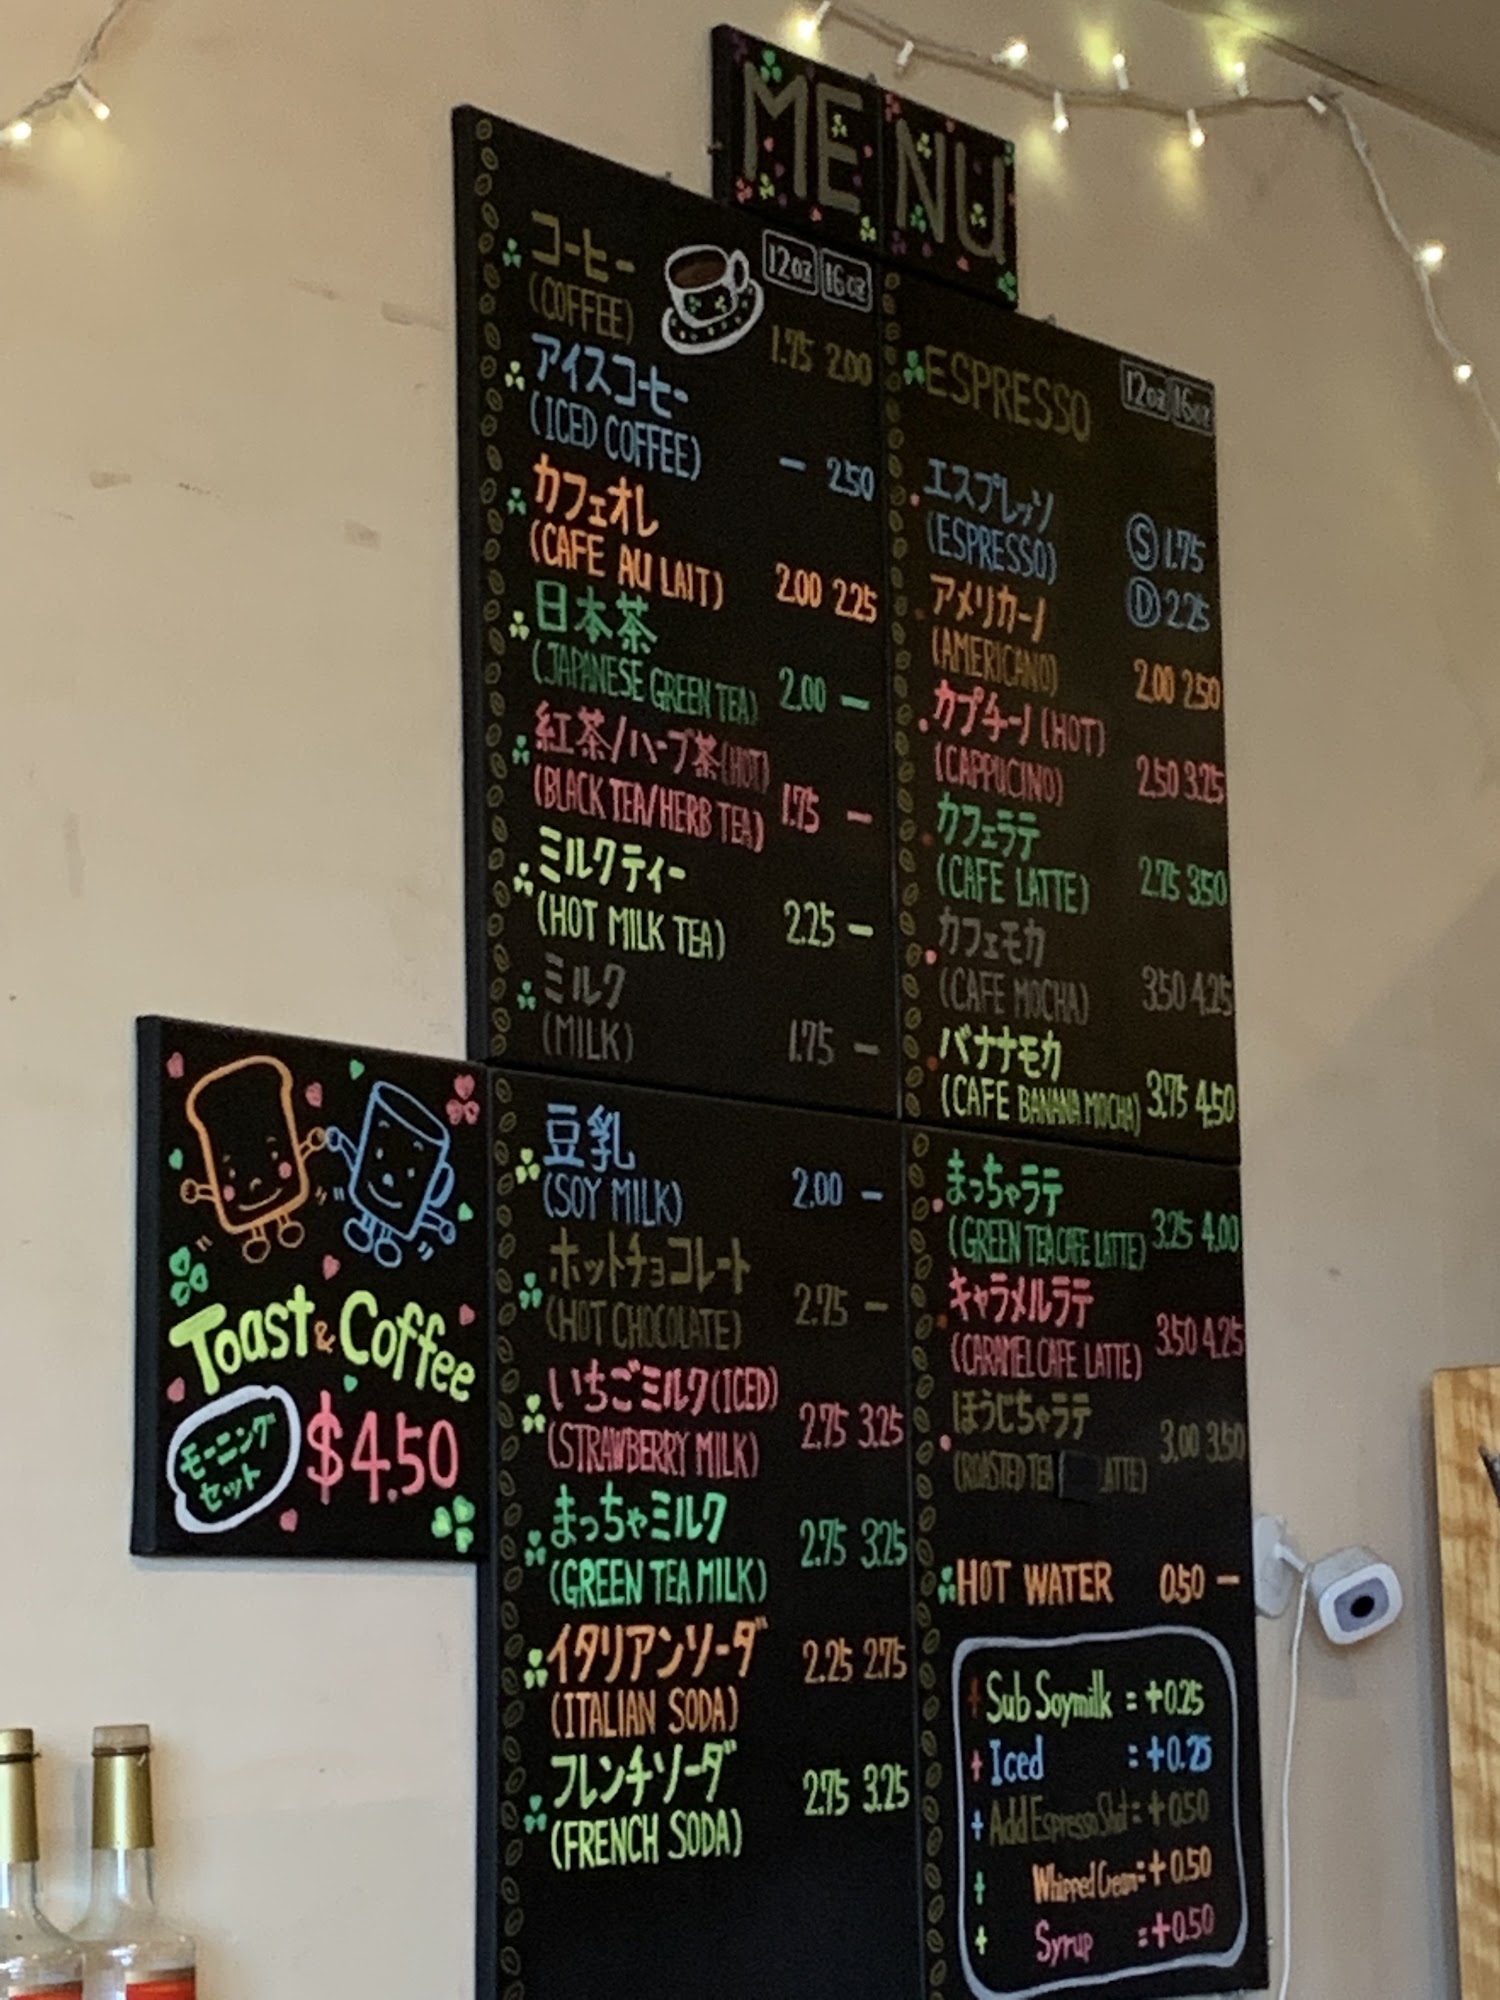 MENU
12oz 16oz
コーヒー
(COFFEE) 1.75 2.00
アイスコーヒー
(ICED COFFEE) — 2.50
カフェオレ
(CAFE AU LAIT) 2.00 2.25
日本茶
(JAPANESE GREEN TEA) 2.00 —
紅茶/ハーブ茶(HOT)
(BLACK TEA/HERB TEA) 1.75 —
ミルクティー
(HOT MILK TEA) 2.25 —
ミルク
(MILK) 1.75 —
豆乳
(SOY MILK) 2.00 —
ホットチョコレート
(HOT CHOCOLATE) 2.75 —
いちごミルク(ICED)
(STRAWBERRY MILK) 2.75 3.25
まっちゃミルク
(GREEN TEA MILK) 2.75 3.25
イタリアンソーダ
(ITALIAN SODA) 2.25 2.75
フレンチソーダ
(FRENCH SODA) 2.75 3.25
ESPRESSO 12oz 16oz
エスプレッソ
(ESPRESSO) S 1.75
D 2.25
アメリカーノ
(AMERICANO) 2.00 2.50
カプチーノ(HOT)
(CAPPUCINO) 2.50 3.25
カフェラテ
(CAFE LATTE) 2.75 3.50
カフェモカ
(CAFE MOCHA) 3.50 4.25
バナナモカ
(CAFE BANANA MOCHA) 3.75 4.50
まっちゃラテ
(GREEN TEA CAFE LATTE) 3.25 4.00
キャラメルラテ
(CARAMEL CAFE LATTE) 3.50 4.25
ほうじちゃラテ
(ROASTED TEA ATTE) 3.00 3.50
HOT WATER 0.50 —
+ Sub Soymilk = +0.25
+ Iced = +0.25
+ Add Espresso Shot = +0.50
+ Whipped Cream = +0.50
+ Syrup = +0.50
Toast & Coffee
モーニング
セット
$4.50